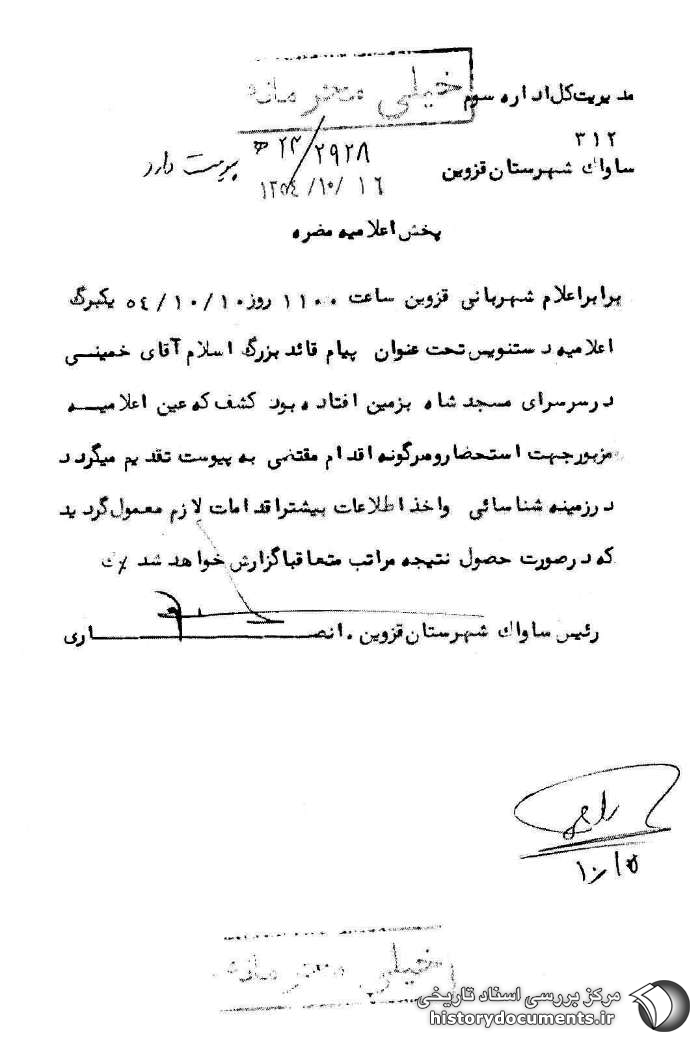 خیلی محرمانه
مدیریت کل اداره سوم
۳۱۲
۲۹۲۸/ ﻫ ۲۴
ساواک شهرستان قزوین
۱۳۵۴/۱۰/۱۶
پیوست دارد
پخش اعلامیه مضره
برابر اعلام شهربانی قزوین ساعت ۱۱۰۰ روز ۵۴/۱۰/۱۰ یکبرگ
اعلامیه دستنویس تحت عنوان پیام قائد بزرگ اسلام آقای خمینی
در سرسرای مسجد شاه بزمین افتاده بود کشف که عین اعلامیه
مزبور جهت استحضار و هرگونه اقدام مقتضی به پیوست تقدیم میگردد
در زمینه شناسائی و اخذ اطلاعات بیشتر اقدامات لازم معمول گردید
که در صورت حصول نتیجه مراتب متعاقبا گزارش خواهد شد
رئیس ساواک شهرستان قزوین . انصاری
خیلی محرمانه
مرکز بررسی اسناد تاریخی
historydocuments.ir